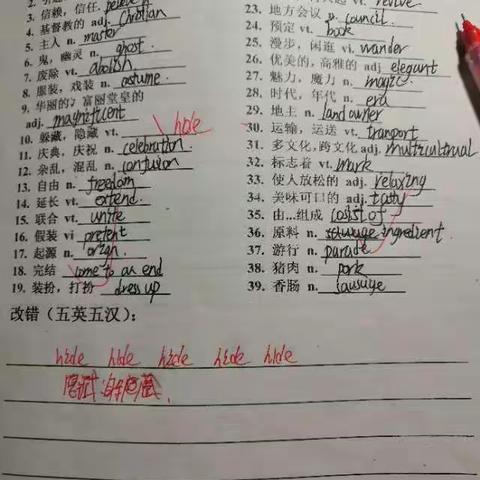 3. 信赖，信任. believe in
4. 基督教的 adj. Christian
5. 主人 n. master
6. 鬼，幽灵 n. ghost.
7. 废除 vt. abolish
8. 服装，戏装 n. costume.
9. 华丽的，富丽堂皇的
adj. magnificent
10. 躲藏，隐藏 vt. hide
11. 庆典，庆祝 n. celebration.
12. 杂乱，混乱 n. confusion
13. 自由 n. freedom
14. 延长 vt. extend.
15. 联合 vt. unite
16. 假装 vi pretent
17. 起源 n. orign.
18. 完结 come to an end
19. 装扮，打扮 dress up
23. 地方会议 n. council.
24. 预定 vt. book
25. 漫步，闲逛 vi. wander
26. 优美的，高雅的 adj. elegant
27. 魅力，魔力 n. magic.
28. 时代，年代 n. era
29. 地主 n. landowner
30. 运输，运送 vt. transport
31. 多文化，跨文化 adj. multicultrual
32. 标志着 vt. mark
33. 使人放松的 adj. relaxing
34. 美味可口的 adj. tatty
35. 由...组成 cosist of
36. 原料 n. ingredient.
37. 游行 n. parade
38. 猪肉 n. pork
39. 香肠 n. sausuge
改错（五英五汉）：
hide hide hide hide hide